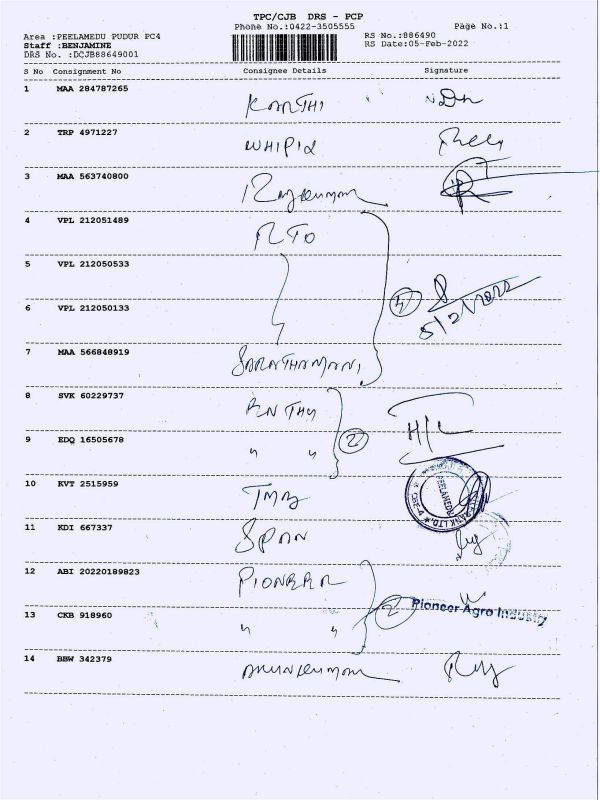 TPC/CJB DRS - PCP
Phone No.:0422-3505555 Page No.:1
Area :PEELAMEDU PUDUR PC4 RS No.:886490
Staff :BENJAMINE RS Date:05-Feb-2022
DRS No. :DCJB88649001
S No Consignment No Consignee Details Signature
1 MAA 284787265 KARTHI
2 TRP 4971227
3 MAA 563740800
4 VPL 212051489 RTO
5 VPL 212050533
6 VPL 212050133 4 5/2/2022
7 MAA 566848919
8 SVK 60229737
9 EDQ 16505678 " " 2 H/L
10 KVT 2515959 TMB PEELAMEDU
11 KDI 667337 SPAN
12 ABI 20220189823 PIONEER
13 CKB 918960 " " 2 Pioneer Agro Industry
14 BBW 342379